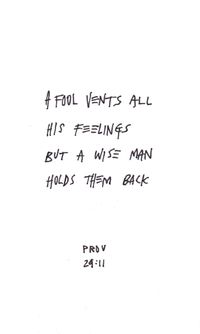 A FOOL VENTS ALL
HIS FEELINGS
BUT A WISE MAN
HOLDS THEM BACK
PROV
29:11